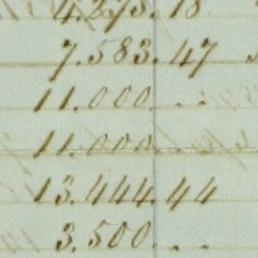 4.273.18
7.583.47
11.000. . .
11.000. . .
13.444.44
3.500. . .